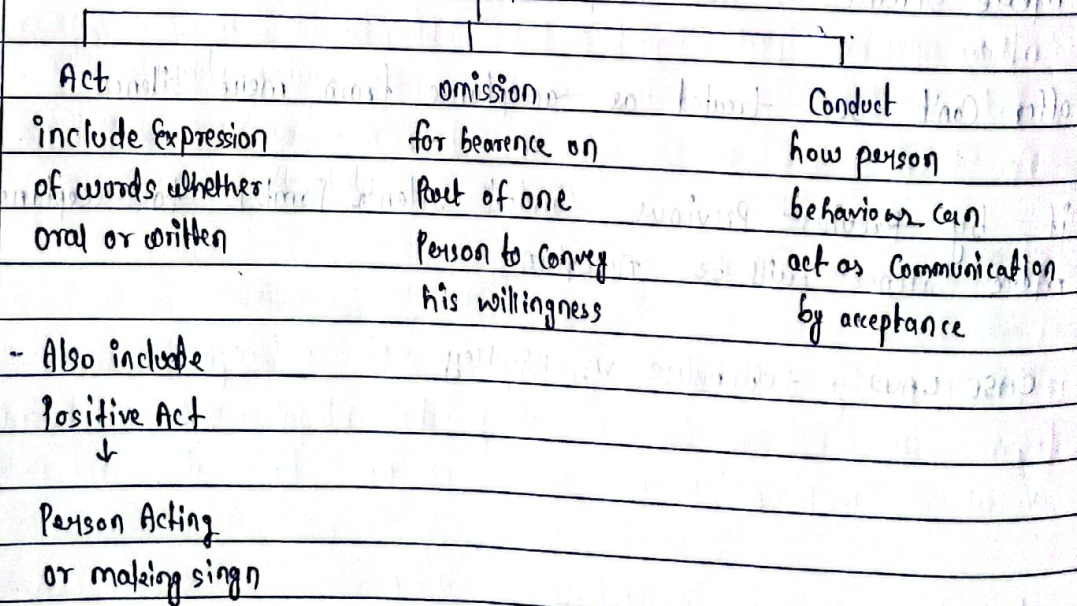 Act
include Expression
of words whether
oral or written
- Also include
Positive Act
↓
Person Acting
or making singn
omission
for bearence on
Part of one
Person to convey
his willingness
Conduct
how person
behaviour can
act as communication
by acceptance